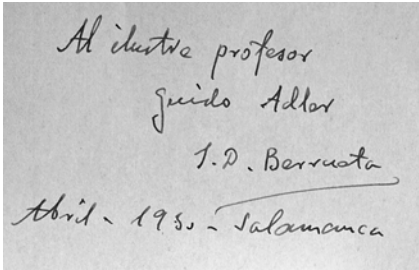 Al ilustre profesor
Guido Adler
J. D. Berrueta
Abril - 1930 - Salamanca